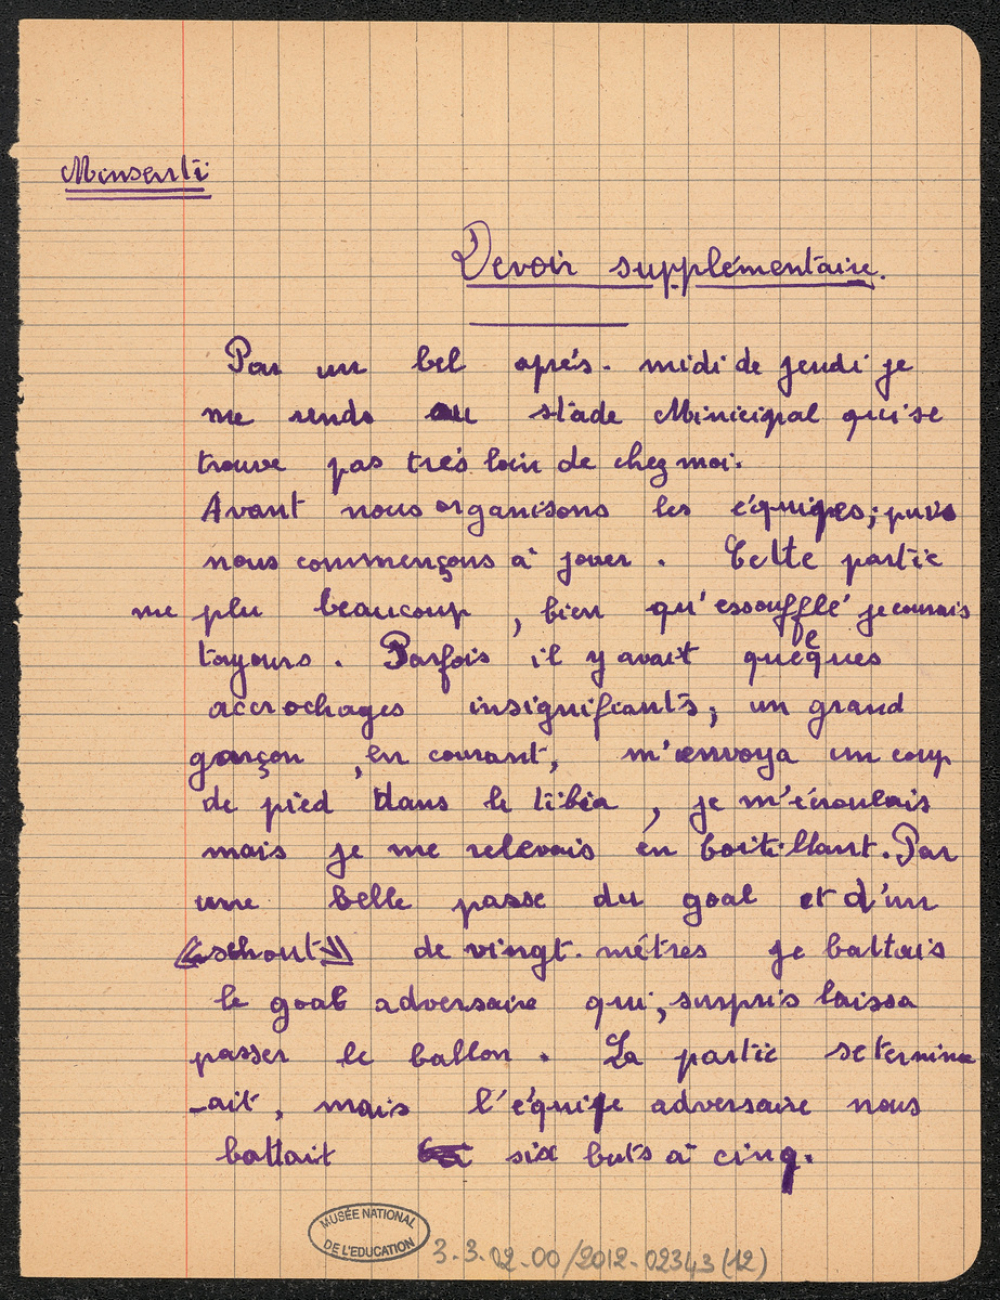 Minsenti
Devoir supplémentaire.
Par un bel après-midi de jeudi je
me rends au stade Municipal qui se
trouve pas très loin de chez moi.
Avant nous organisons les équipes; puis
nous commençons à jouer. Cette partie
me plu beaucoup, bien qu'essoufflé je courais
toujours. Parfois il y avait quelques
accrochages insignificants; un grand
garçon, en courant, m'envoya un coup
de pied dans le tibia, je m'écroulais
mais je me relevais en boitillant. Par
une belle passe du goal et d'un
«schout» de vingt-mètres je battais
le goal adversaire qui, surpris laissa
passer le ballon. La partie se termina
-ait, mais l'équipe adversaire nous
battait six buts à cinq.
MUSÉE NATIONAL
DE L'EDUCATION
3.3.02.00/2012-02343(12)